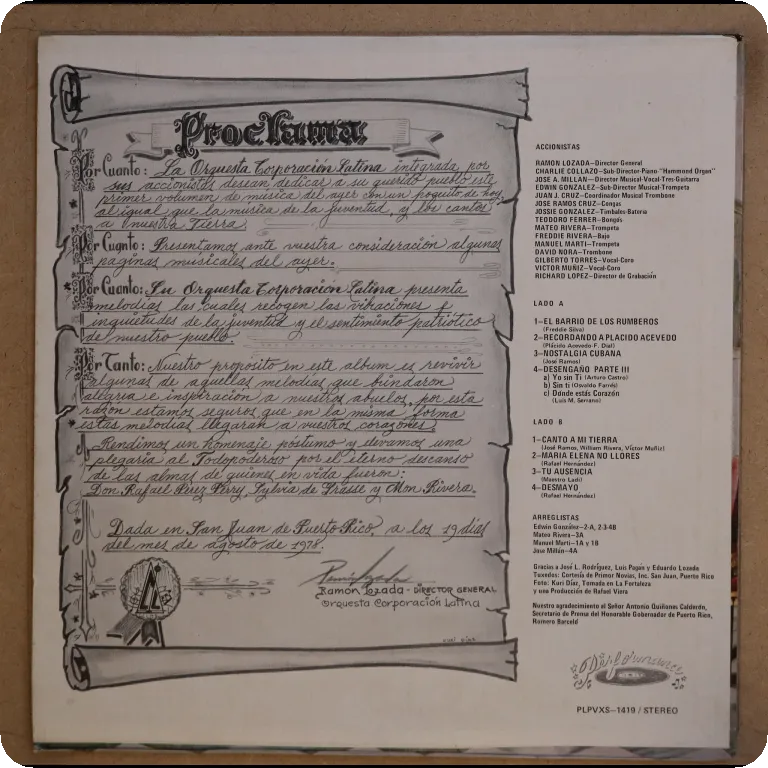 Proclama
Por Cuanto: La Orquesta Corporación Latina integrada por
sus accionistas desean dedicar a su querido pueblo este
primer volumen de musica del ayer con un poquito de hoy
al igual que la musica de la juventud, y los cantos
a nuestra Tierra.
Por Cuanto: Presentamos ante vuestra consideración algunas
paginas musicales del ayer.
Por Cuanto: Su Orquesta Corporación Latina presenta
melodias las cuales recogen las vibraciones e
inquietudes de la juventud y el sentimiento patriótico
de nuestro pueblo.
Por Tanto: Nuestro proposito en este album es revivir
algunas de aquellas melodias que brindaron
alegria e inspiración a nuestros abuelos, por esta
razón estamos seguros que en la misma forma
estas melodias llegaran a vuestros corazones.
Rendimos un homenaje póstumo y elevamos una
plegaria al Todopoderoso por el eterno descanso
de las almas de quienes en vida fueron:
Don Rafael Perez Perry, Sylvia de Grasse y Mon Rivera.
Dada en San Juan de Puerto Rico, a los 19 dias
del mes de agosto de 1978.
Ramon Lozada - DIRECTOR GENERAL
Orquesta Corporación Latina
ACCIONISTAS
RAMON LOZADA—Director General
CHARLIE COLLAZO—Sub-Director-Piano-"Hammond Organ"
JOSE A. MILLAN—Director Musical-Vocal-Tres-Guitarra
EDWIN GONZALEZ—Sub-Director Musical-Trompeta
JUAN J. CRUZ—Coordinador Musical Trombone
JOSE RAMOS CRUZ—Congas
JOSSIE GONZALEZ—Timbales-Bateria
TEODORO FERRER—Bongós
MATEO RIVERA—Trompeta
FREDDIE RIVERA—Bajo
MANUEL MARTI—Trompeta
DAVID NORA—Trombone
GILBERTO TORRES—Vocal-Coro
VICTOR MUÑIZ—Vocal-Coro
RICHARD LOPEZ—Director de Grabación
LADO A
1—EL BARRIO DE LOS RUMBEROS
(Freddie Silva)
2—RECORDANDO A PLACIDO ACEVEDO
(Plácido Acevedo-F. Dial)
3—NOSTALGIA CUBANA
(José Ramos)
4—DESENGAÑO PARTE III
a) Yo sin Ti (Arturo Castro)
b) Sin ti (Osvaldo Farrés)
c) Dónde estás Corazón
(Luis M. Serrano)
LADO B
1—CANTO A MI TIERRA
(José Ramos, William Rivera, Víctor Muñiz)
2—MARIA ELENA NO LLORES
(Rafael Hernández)
3—TU AUSENCIA
(Maestro Ladi)
4—DESMAYO
(Rafael Hernández)
ARREGLISTAS
Edwin González—2-A, 2-3-4B
Mateo Rivera—3A
Manuel Marti—1A y 1B
Jose Millán—4A
Gracias a José L. Rodríguez, Luis Pagán y Eduardo Lozada
Tuxedos: Cortesía de Primor Novias, Inc. San Juan, Puerto Rico
Foto: Kuri Díaz, Tomada en La Fortaleza
y una Producción de Rafael Viera
Nuestro agradecimiento al Señor Antonio Quiñones Calderón,
Secretario de Prensa del Honorable Gobernador de Puerto Rico,
Romero Barceló
PLPVXS—1419 / STEREO